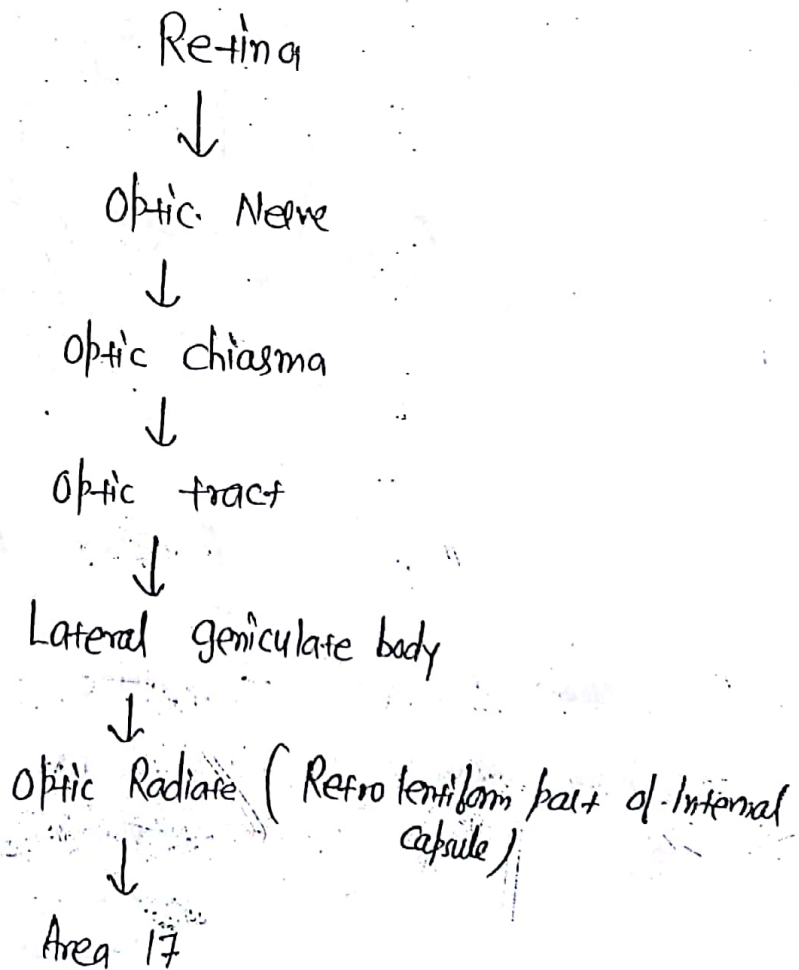 Retina
↓
Optic Nerve
↓
Optic chiasma
↓
Optic tract
↓
Lateral geniculate body
↓
Optic Radiate (Retro lentiform part of Internal
capsule)
↓
Area 17